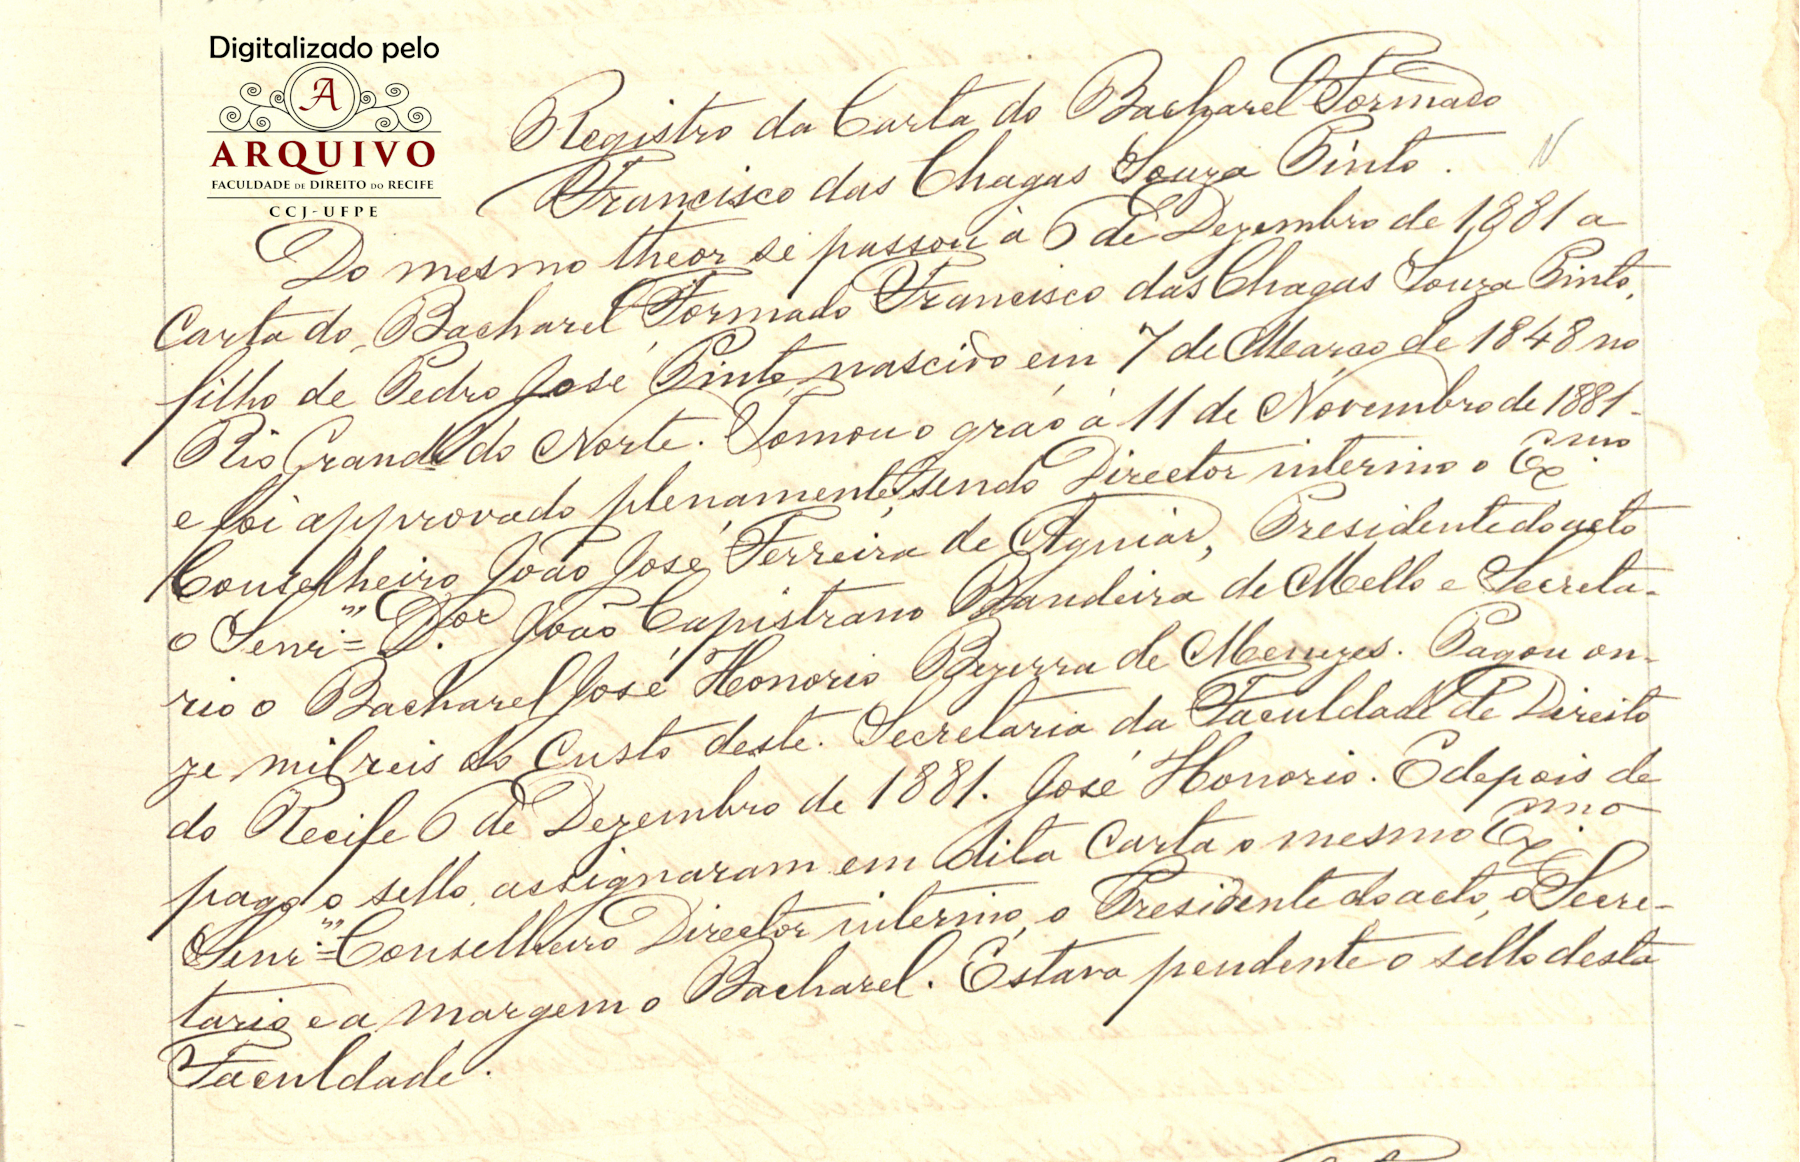 Digitalizado pelo
A
ARQUIVO
FACULDADE DE DIREITO DO RECIFE
CCJ-UFPE
Registro da Carta do Bacharel Formado
Francisco das Chagas Souza Pinto.
Do mesmo theor se passou à 6 de Dezembro de 1881 a
Carta do Bacharel Formado Francisco das Chagas Souza Pinto,
filho de Pedro José Pinto, nascido em 7 de Março de 1848 no
Rio Grande do Norte. Tomou o gráo á 11 de Novembro de 1881
e foi approvado plenamente, sendo Director interino o Ex.mo
Conselheiro João José Ferreira de Aguiar, Presidente do acto
o Senr. D.or João Capistrano Bandeira de Mello e Secreta-
rio o Bacharel José Honorio Bezerra de Menezes. Pagou on-
ze mil reis do custo deste. Secretaria da Faculdade de Direito
do Recife 6 de Dezembro de 1881. José Honorio. E depois de
pago o sello, assignaram em dita Carta o mesmo Ex.mo
Senr. Conselheiro Director interino, o Presidente do acto, o Secre-
tario e a margem o Bacharel. Estava pendente o sello desta
Faculdade.